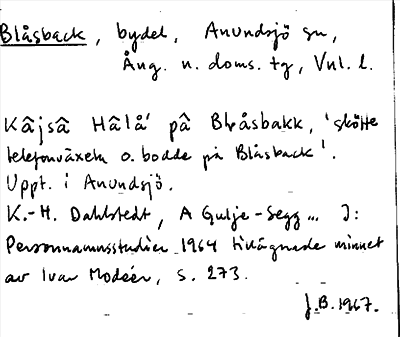 Blåsback, bydel, Anundsjö sn,
Ång. n. doms. tg, Vnl. l.
Kâjsâ Hâlâ' på Blåsbakk, 'skötte
telefonväxeln o. bodde på Blåsback'.
Uppt. i Anundsjö.
K.-H. Dahlstedt, A Gulje-Segg... I:
Personnamnsstudier 1964 tillägnade minnet
av Ivar Modéer, s. 273.
J.B. 1967.